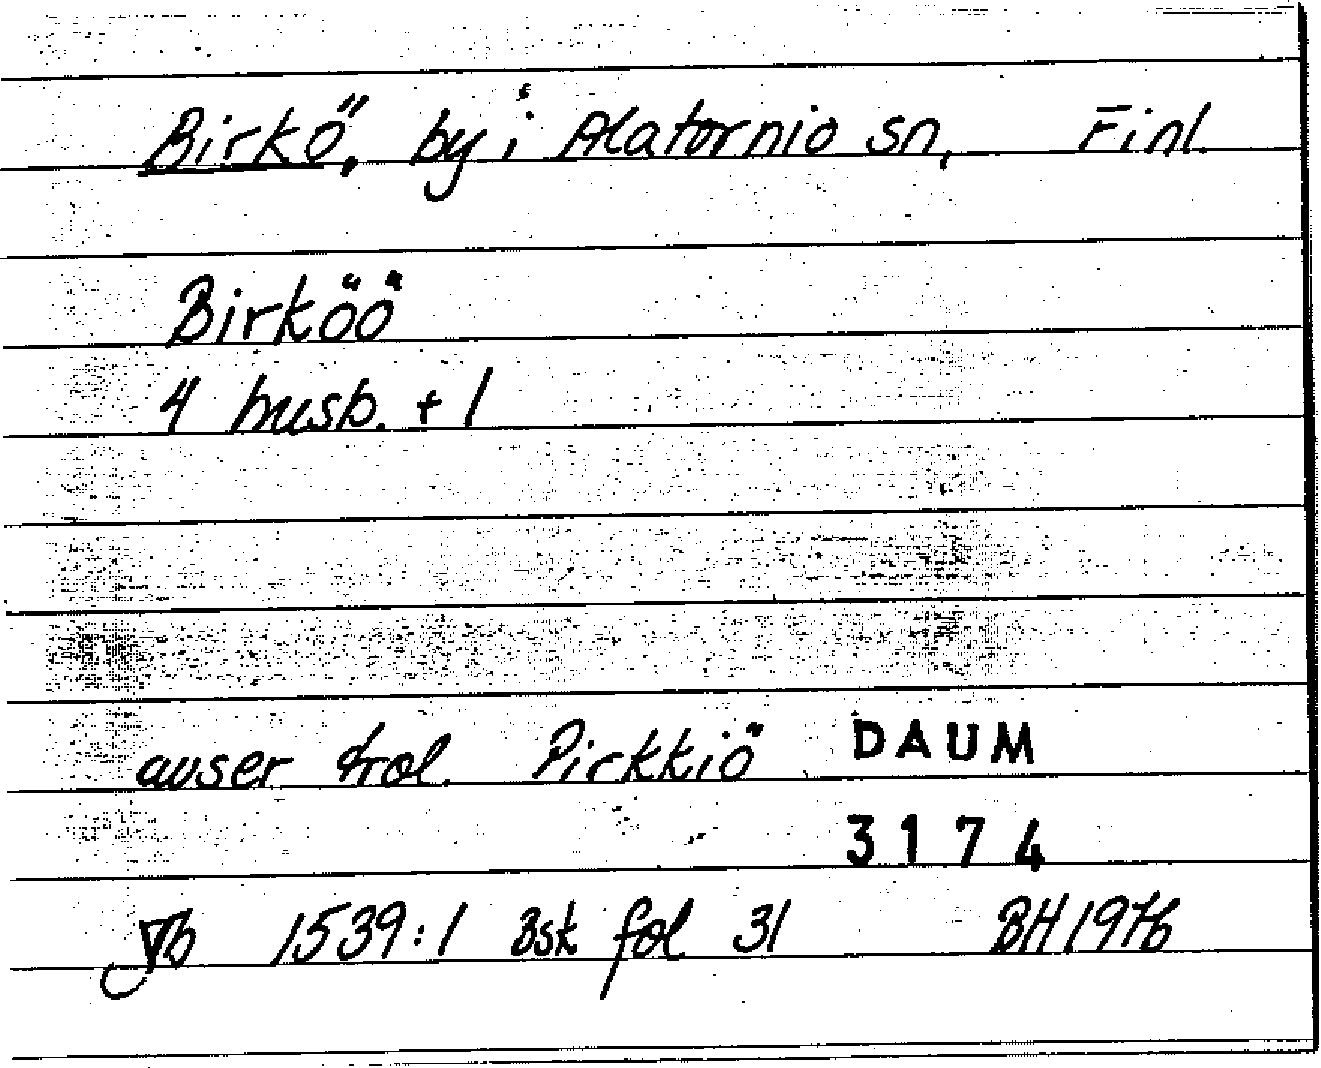 Birkö, by i Alatornio sn, Finl.
Birköö
4 husb. + 1
avser trol. Pirkkiö DAUM
3174
Jb 1539:1 Bsk fol 31 BH 1976